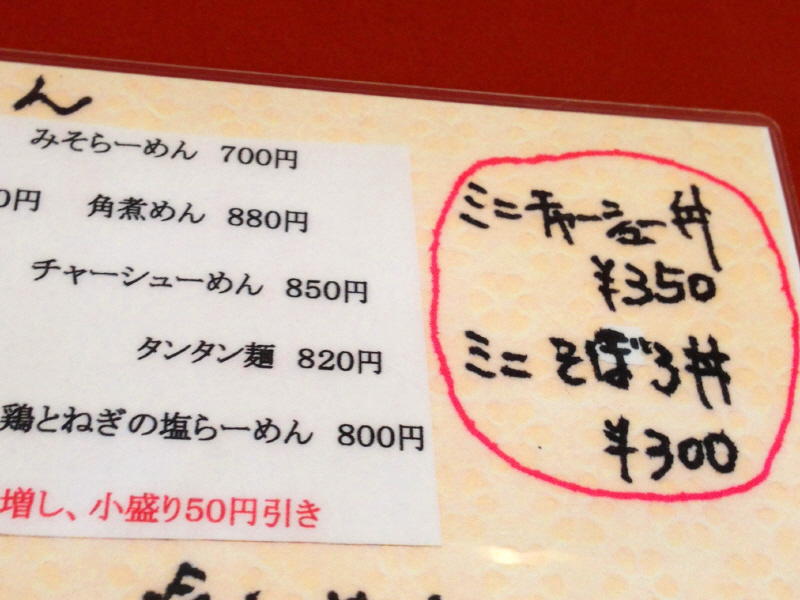 ん
みそらーめん 700円
0円 角煮めん 880円
チャーシューめん 850円
タンタン麺 820円
鶏とねぎの塩らーめん 800円
増し、小盛り50円引き
ミニチャーシュー丼
¥350
ミニそぼろ丼
¥300